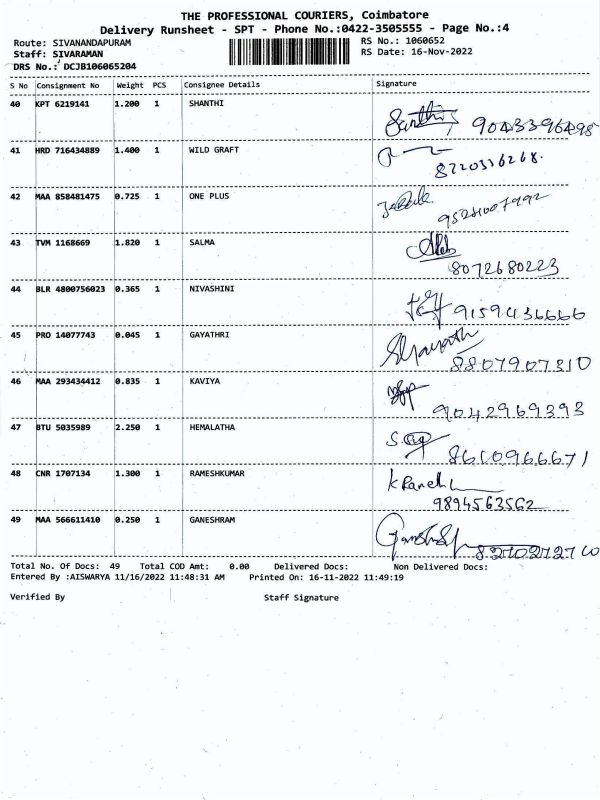 THE PROFESSIONAL COURIERS, Coimbatore
Delivery Runsheet - SPT - Phone No.:0422-3505555 - Page No.:4
Route: SIVANANDAPURAM
Staff: SIVARAMAN
DRS No.: DCJB106065204
RS No.: 1060652
RS Date: 16-Nov-2022
S No Consignment No Weight PCS Consignee Details Signature
40 KPT 6219141 1.200 1 SHANTHI
9043396498
41 HRD 716434889 1.400 1 WILD GRAFT
8220316268.
42 MAA 858481475 0.725 1 ONE PLUS
43 TVM 1168669 1.820 1 SALMA
8072680223
44 BLR 4800756023 0.365 1 NIVASHINI
9159436666
45 PRO 14077743 0.045 1 GAYATHRI
8807907310
46 MAA 293434412 0.835 1 KAVIYA
9042969393
47 BTU 5035989 2.250 1 HEMALATHA
8610966671
48 CNR 1707134 1.300 1 RAMESHKUMAR
9894563562
49 MAA 566611410 0.250 1 GANESHRAM
Total No. Of Docs: 49 Total COD Amt: 0.00 Delivered Docs: Non Delivered Docs:
Entered By :AISWARYA 11/16/2022 11:48:31 AM Printed On: 16-11-2022 11:49:19
Verified By Staff Signature